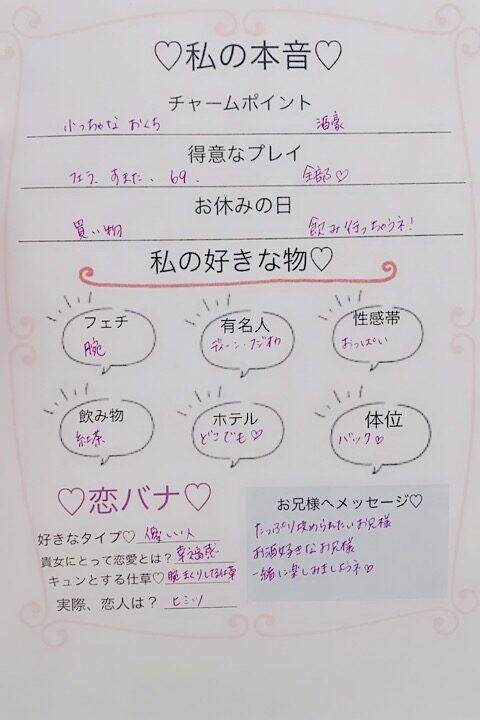 ♡私の本音♡
チャームポイント
小っちゃな おくち 酒豪
得意なプレイ
フェラ、すまた、69、 全部♡
お休みの日
買い物 飲み行っちゃうネ!
私の好きな物♡
フェチ 有名人 性感帯
腕 ディーン・フジオカ おっぱい
飲み物 ホテル 体位
紅茶 どこでも♡ バック♡
♡恋バナ♡
好きなタイプ♡ 優しい人
貴女にとって恋愛とは? 幸福感
キュンとする仕草♡ 腕まくりしてる仕草
実際、恋人は? ヒミツ
お兄様へメッセージ♡
たっぷり攻められたいお兄様
お酒好きなお兄様
一緒に楽しみましょうネ♡